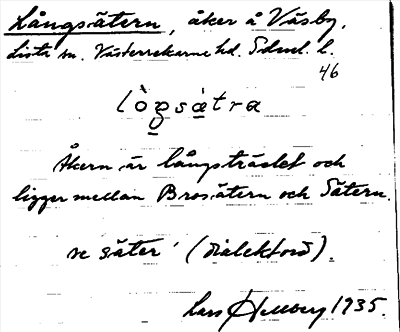 Långsätern, åker å Väsby,
Lista sn. Västerrekarne hd. Södml. l.
46
lògsàtra
Åkern är långsträckt och
ligger mellan Brosätern och Sätern.
se säter (dialektord).
Lars Hellberg 1935.